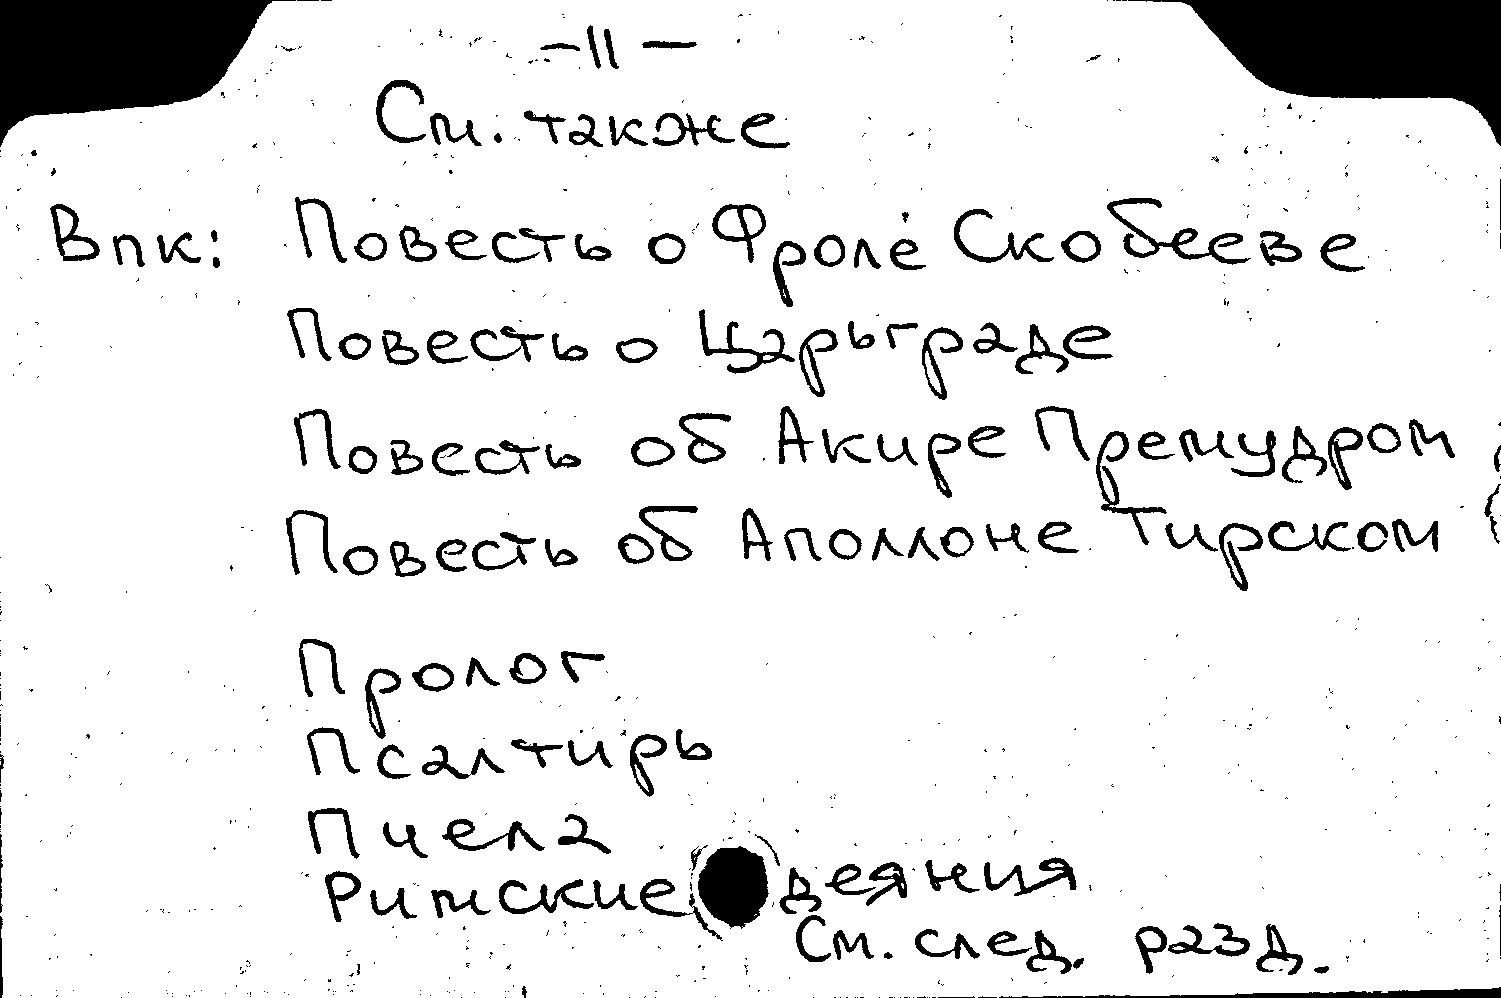 – || –
См. также
Впк: Повесть о Фроле Скобееве
Повесть о Царьграде
Повесть об Акире Премудром
Повесть об Аполлоне Тирском
Пролог
Псалтирь
Пчела
Римские деяния
См. след. разд.